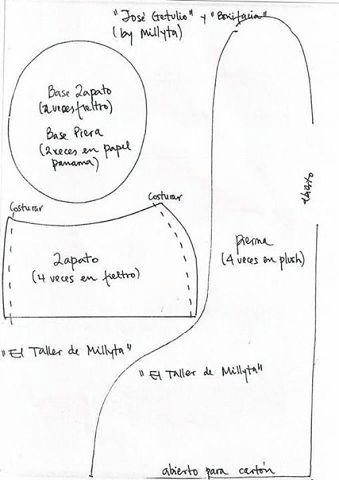 "José Getulio" y "Bonifacia"
(by Millyta)
Base Zapato
(2 veces fieltro)
Base Piera
(2 veces en papel
panama)
Costurar
Costurar
Zapato
(4 veces en fieltro)
pierna
(4 veces en plush)
"El Taller de Millyta"
"El Taller de Millyta"
abierto para cartón